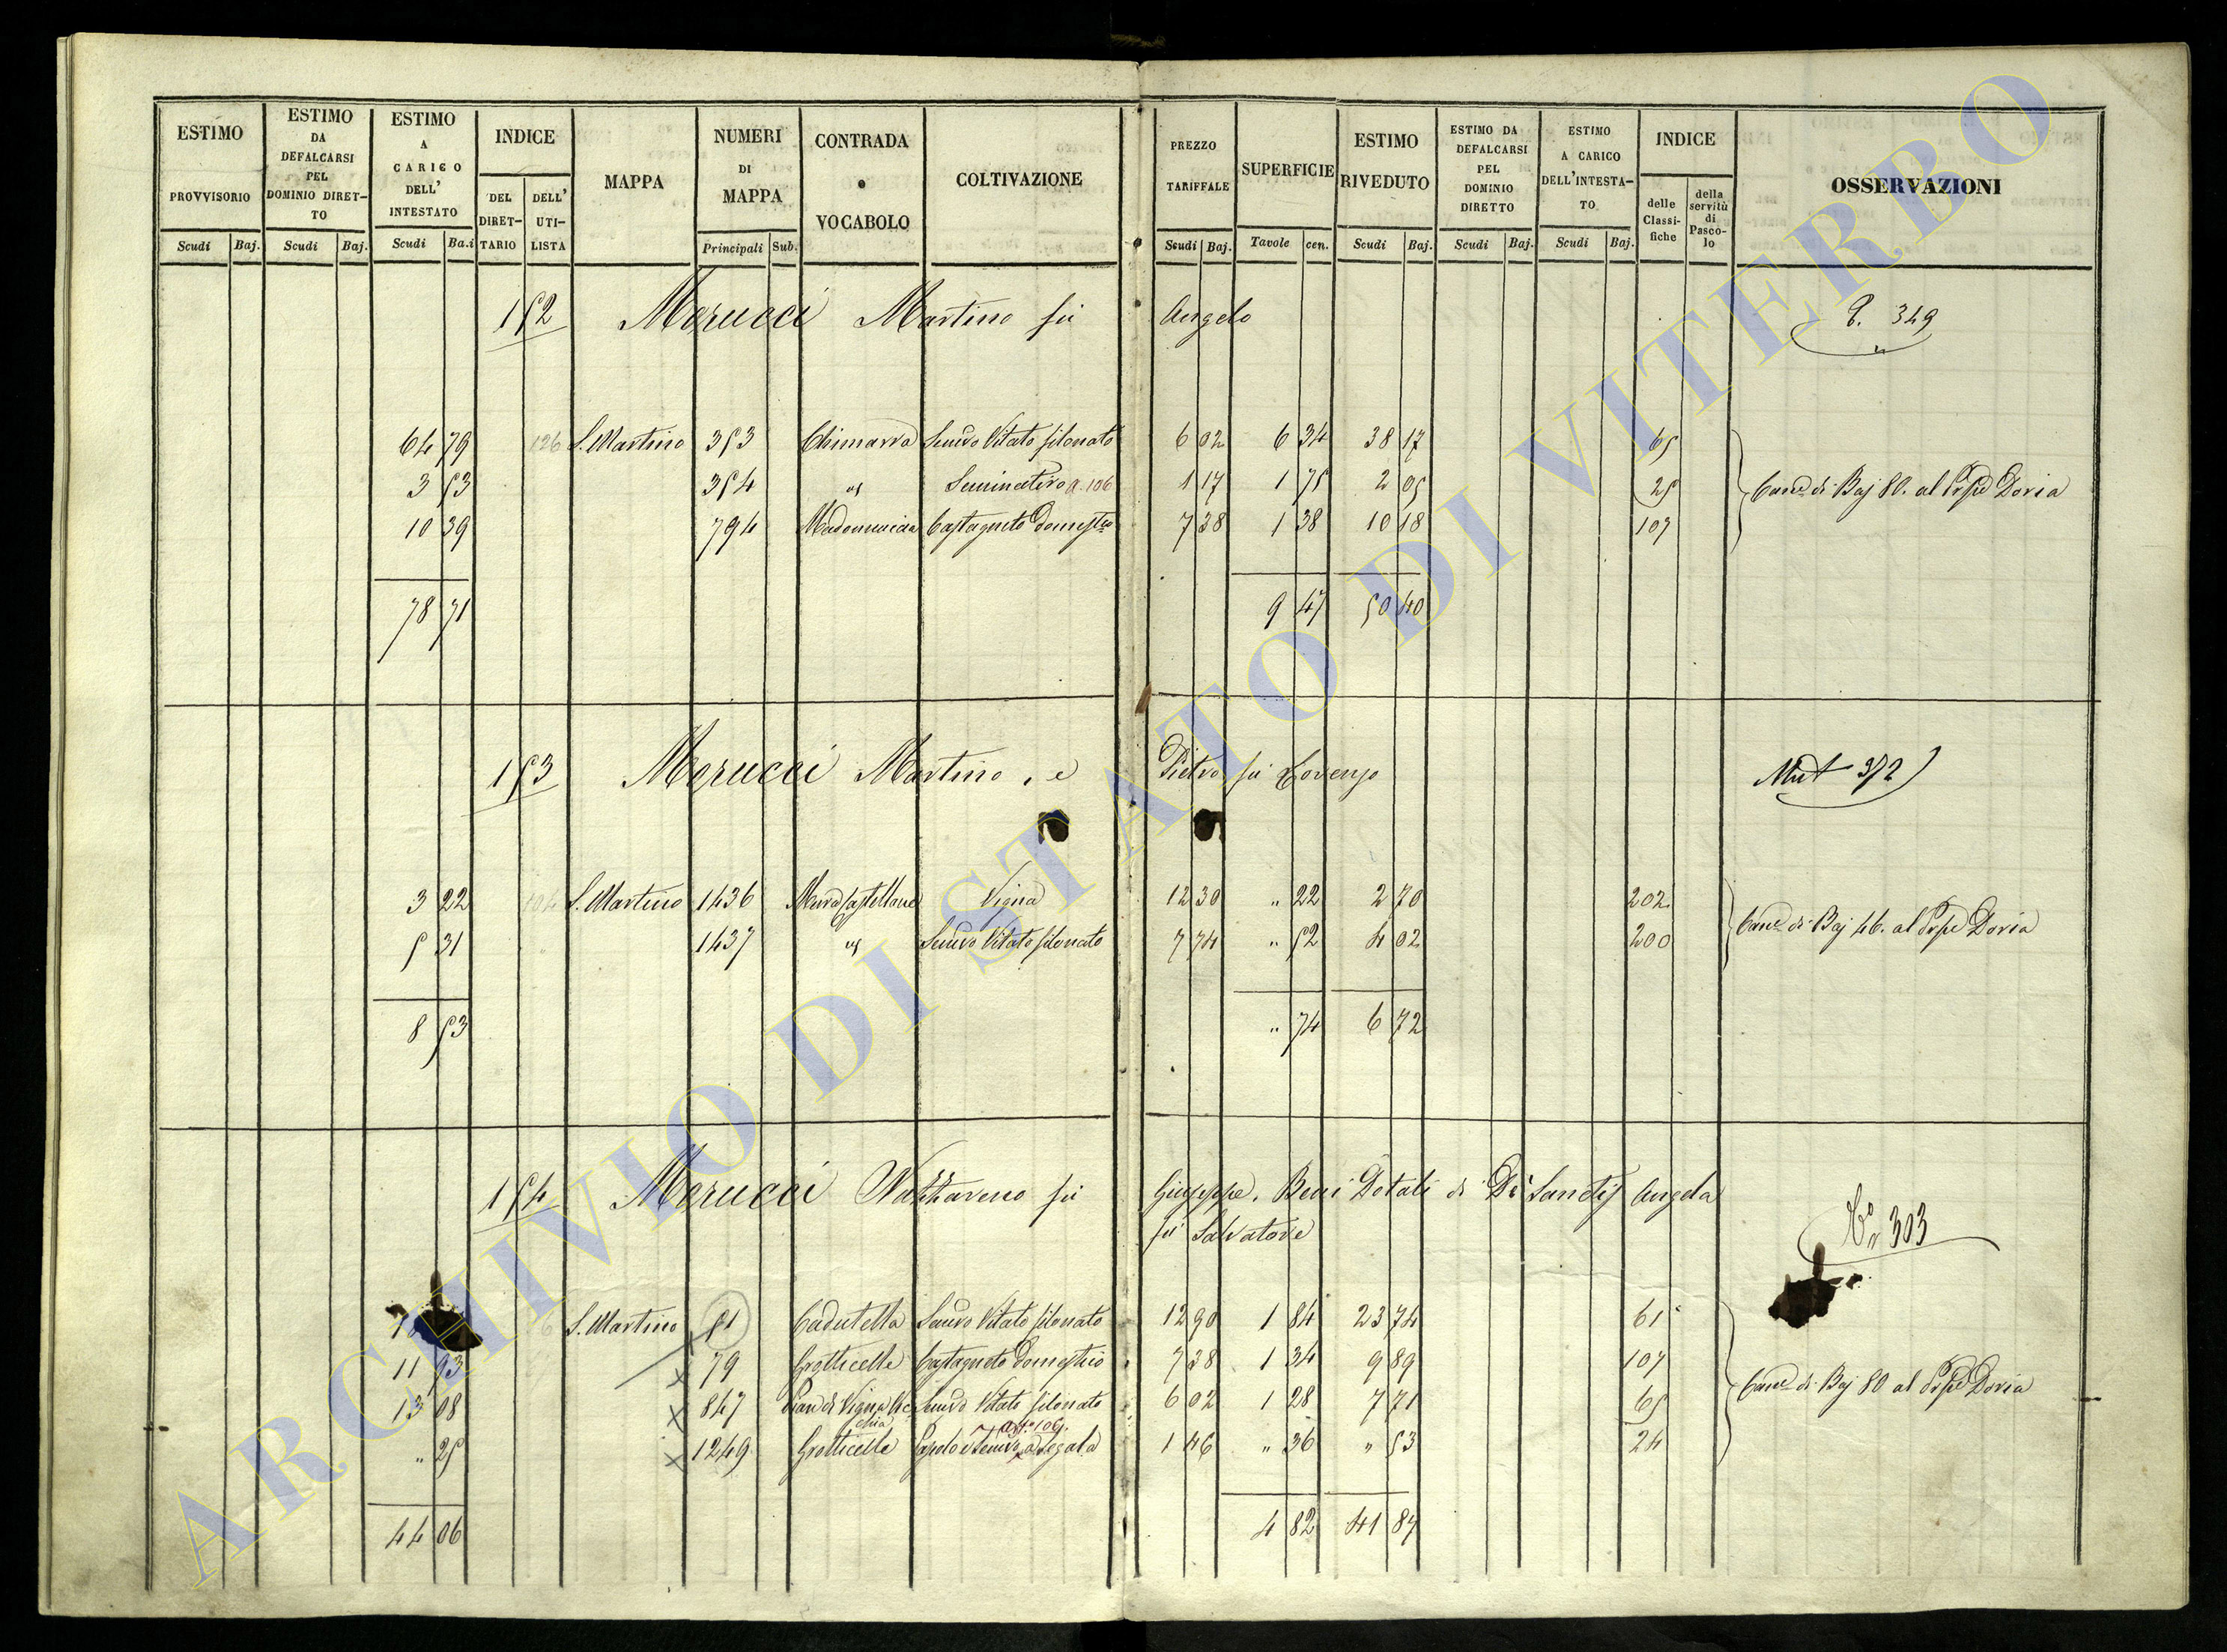 ESTIMO PROVVISORIO Scudi Baj.
ESTIMO DA DEFALCARSI PEL DOMINIO DIRETTO Scudi Baj.
ESTIMO A CARICO DELL' INTESTATO Scudi Ba.i
INDICE DEL DIRETTARIO DELL' UTILISTA
MAPPA
NUMERI DI MAPPA Principali Sub.
CONTRADA o VOCABOLO
COLTIVAZIONE
PREZZO TARIFFALE Scudi Baj.
SUPERFICIE Tavole cen.
ESTIMO RIVEDUTO Scudi Baj.
ESTIMO DA DEFALCARSI PEL DOMINIO DIRETTO Scudi Baj.
ESTIMO A CARICO DELL'INTESTATO Scudi Baj.
INDICE delle Classifiche della servitù di Pascolo
OSSERVAZIONI
152 Morucci Martino fu Angelo 349
64 79 126 S. Martino 353 Chimarra Semvo Vitato filonato 6 02 6 34 38 17 65
3 53 354 " Seminativo a. 106 1 17 1 75 2 05 25 Cane di Baj 80. al Prpe Doria
10 39 794 Madonnuccia Castagneto Domestco 7 38 1 38 10 18 107
78 71 9 47 50 40
153 Morucci Martino, e Pietro fu Lorenzo Mut 372
3 22 104 S. Martino 1436 Mura Castellane Vigna 12 30 " 22 2 70 202
5 31 1437 " Semvo Vitato filonato 7 74 " 52 4 02 200 Cane di Baj 46. al Prpe Doria
8 53 " 74 6 72
154 Morucci Nazzareno fu Giuseppe, Beni Dotali di De Sanctis Angela
fu Salvatore
No 303
S. Martino 51 Cadutella Semvo Vitato filonato 12 90 1 84 23 74 61
11 93 79 Grotticelle Castagneto Domestico 7 38 1 34 9 89 107
13 08 847 Pian di Vignavecchia Semvo Vitato filonato 6 02 1 28 7 71 65 Cane di Baj 80 al Prpe Doria
" 25 1249 Grotticelle 1 46 " 36 " 53 24
44 06 4 82 41 87
ARCHIVIO DI STATO DI VITERBO